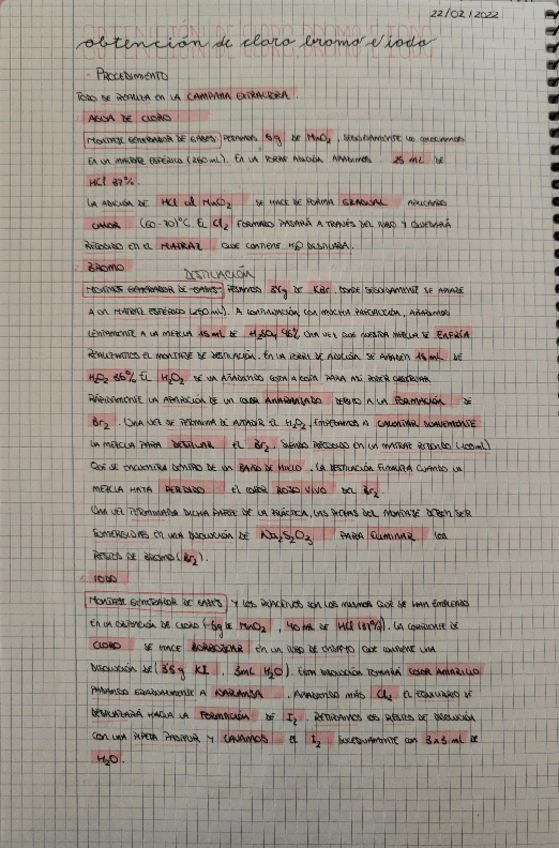 22/02/2022
obtención de cloro bromo e iodo
- PROCEDIMIENTO
TODO SE REALIZA EN LA CAMPANA EXTRACTORA.
AGUA DE CLORO
MONTAJE GENERADOR DE GASES: PESAMOS 5g DE MnO2, SEGUIDAMENTE LO COLOCAMOS
EN UN MATRAZ ESFÉRICO (250 mL). EN LA ADICIÓN AÑADIMOS 25 mL DE
HCl 37%.
LA ADICIÓN DE HCl al MnO2 SE HACE DE FORMA GRADUAL APLICANDO
CALOR (60-70)ºC. EL Cl2 FORMADO PASARÁ A TRAVÉS DEL TUBO Y QUEDARÁ
RECOGIDO EN EL MATRAZ QUE CONTIENE H2O DESTILADA.
- BROMO
DESTILACIÓN
MONTAJE GENERADOR DE GASES: PESAMOS DE KBr, DONDE SEGUIDAMENTE SE AÑADE
A UN MATRAZ ESFÉRICO (250 mL). A CONTINUACIÓN, CON MUCHA PRECAUCIÓN, AÑADIMOS
LENTAMENTE A LA MEZCLA 15 mL DE H2SO4 UNA VEZ QUE NUESTRA MEZCLA SE ENFRÍA
REALIZAMOS EL MONTAJE DE DESTILACIÓN. EN LA DE ADICIÓN SE AÑADEN 15 mL DE
H2O2 35% EL H2O2 SE VA AÑADIENDO GOTA A GOTA PARA ASÍ PODER OBSERVAR
RÁPIDAMENTE LA APARICIÓN DE UN COLOR ANARANJADO DEBIDO A LA FORMACIÓN DE
Br2. UNA VEZ SE TERMINA DE AÑADIR EL H2O2, EMPEZAMOS A CALENTAR SUAVEMENTE
LA MEZCLA PARA DESTILAR EL Br2. SIENDO RECOGIDO EN UN MATRAZ REDONDO (100mL)
QUE SE ENCUENTRA DENTRO DE UN BAÑO DE HIELO. LA DESTILACIÓN FINALIZA CUANDO LA
MEZCLA HAYA PERDIDO EL COLOR ROJO VIVO DEL Br2.
UNA VEZ TERMINADA DICHA PARTE DE LA PRÁCTICA, LAS PIEZAS DEL MONTAJE DEBEN SER
SUMERGIDAS EN UNA DISOLUCIÓN DE Na2S2O3 PARA ELIMINAR LOS
RESTOS DE BROMO (Br2).
- IODO
MONTAJE GENERADOR DE GASES Y LOS REACTIVOS SON LOS MISMOS QUE SE HAN EMPLEADO
EN LA OBTENCIÓN DE CLORO (5g DE MnO2, 40 mL DE HCl (37%)). LA CORRIENTE DE
CLORO SE HACE BORBOTEAR EN UN TUBO DE ENSAYO QUE CONTIENE UNA
DISOLUCIÓN DE ( KI, 3mL H2O). ESTA DISOLUCIÓN TOMARÁ COLOR AMARILLO
PASANDO GRADUALMENTE A NARANJA. AÑADIENDO MÁS Cl2 EL EQUILIBRIO SE
DESPLAZARÁ HACIA LA FORMACIÓN DE I2. RETIRAMOS LOS RESTOS DE DISOLUCIÓN
CON UNA PIPETA PASTEUR Y LAVAMOS EL I2 SUCESIVAMENTE CON 3x3 mL DE
H2O.